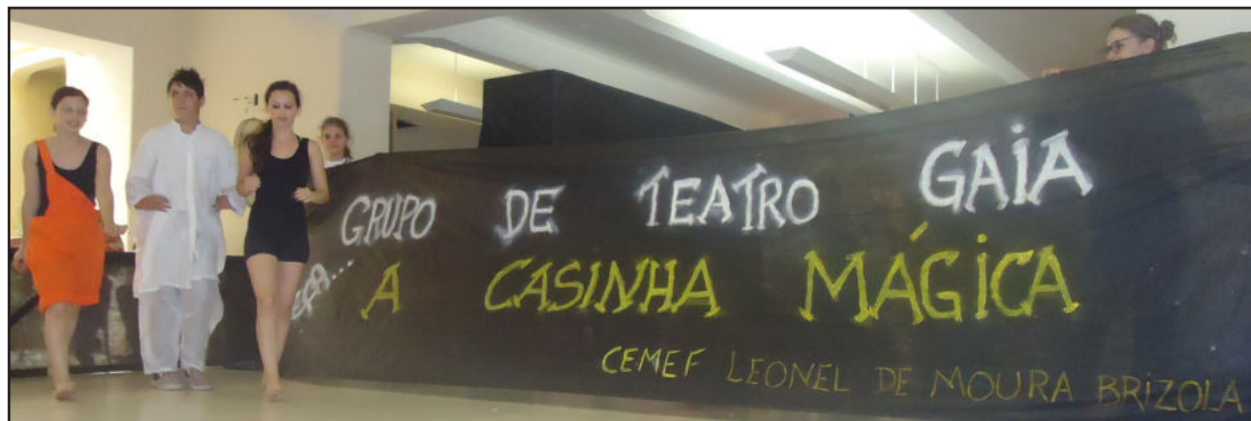 GRUPO DE TEATRO GAIA
PEÇA... A CASINHA MÁGICA
CEMEF LEONEL DE MOURA BRIZOLA